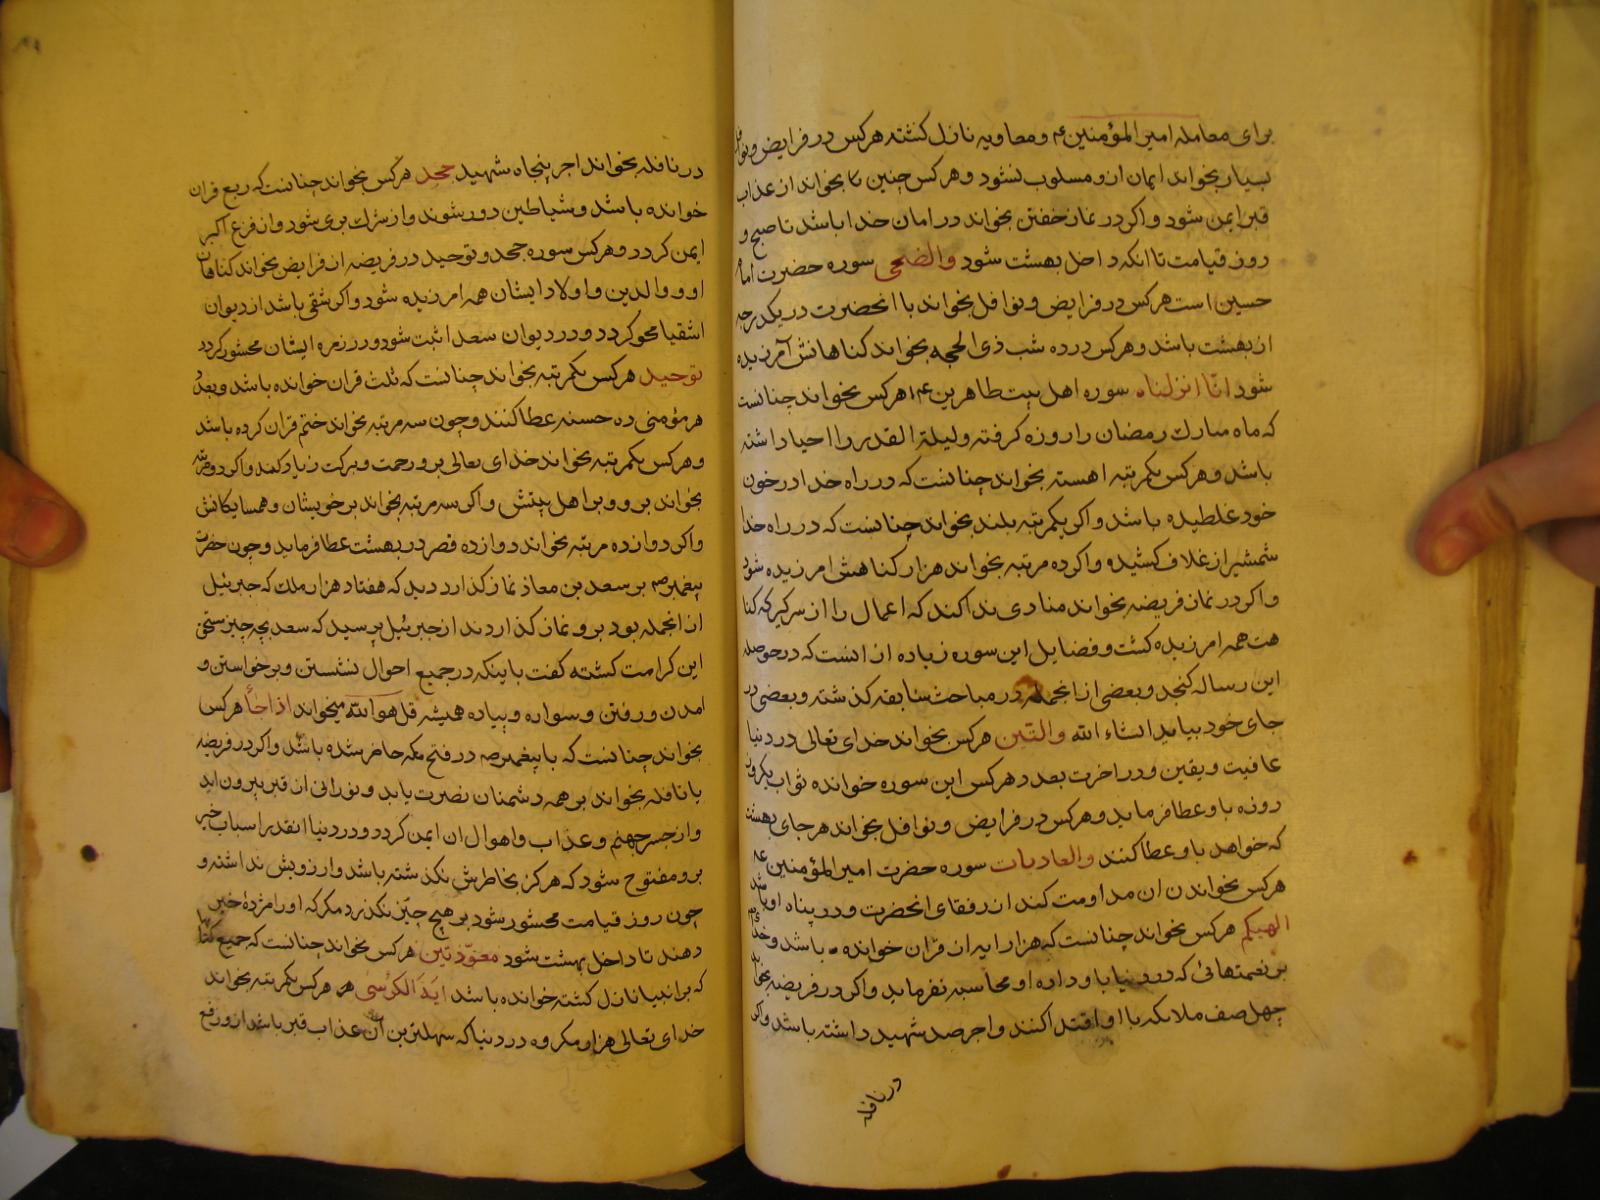 برای معامله امیر المؤمنین ع و معاویه نازل کشته هرکس در فرایض و نوافل
بسیار بخواند ایمان ازو مسلوب نشود و هرکس چنین بخواند از عذاب
قبر ایمن شود و اکر در نماز خفتن بخواند در امان خدا باشد تا صبح و
روز قیامت تا انکه داخل بهشت شود والضحی سوره حضرت امام
حسین است هرکس در فرایض و نوافل بخواند با انحضرت در یکدرجه
از بهشت باشد و هرکس در ده شب ذی الحجه بخواند کناهانش آمرزیده
شود انّا انزلناه سوره اهل بیت طاهرین هرکس بخواند چنانست
که ماه مبارک رمضان را روزه کرفته و لیلة القدر را احیا داشته
باشد و هرکس یکمرتبه اهسته بخواند چنانست که در راه خدا در خون
خود غلطیده باشد و اکر یکمرتبه بلند بخواند چنانست که در راه خدا
شمشیر از غلاف کشیده و اکر ده مرتبه بخواند هزار کناهش امرزیده شود
و اکر در نماز فریضه بخواند منادی ندا کند که اعمال را از سر کیر که کنا
هت همه امرزیده کشت و فضایل این سوره زیاده از انست که در حوصله
این رساله کنجد و بعضی از انجمله در مباحث سابقه کذشته و بعضی در
جای خود بیاید انشاء الله والتین هرکس بخواند خدای تعالی در دنیا
عافیت و یقین و در اخرت بعدد هرکس این سوره خوانده ثواب یکروزه
روزه باو عطا فرماید و هرکس در فرایض و نوافل بخواند هر جای بهشت
که خواهد باو عطا کنند والعادیات سوره حضرت امیر المؤمنین ع
هرکس بخواندن ان مداومت کند از رفقای انحضرت و در پناه او باشد
الهیکم هرکس بخواند چنانست که هزار ایه از قران خوانده باشد و خدا
بر نعمتهائی که در دنیا باو داده او محاسبه نفرماید و اکر در فریضه بخواند
چهل صف ملائکه با او اقتدا کنند و اجر صد شهید داشته باشد و اکر
در نافله
در نافله بخواند اجر پنجاه شهید جحد هرکس بخواند چنانست که ربع قران
خوانده باشد و شیاطین دور شوند و از شرک بری شود و از فزع اکبر
ایمن کردد و هرکس سوره جحد و توحید در فریضه از فرایض بخواند کناهان
او و والدین و اولاد ایشان همه امرزیده شود و اکر شقی باشد از دیوان
اشقیا محو کردد و در دیوان سعدا ثبت شود و در زمره ایشان محشور کردد
توحید هرکس یکمرتبه بخواند چنانست که ثلث قران خوانده باشد و بعدد
هر مؤمنی ده حسنه عطا کنند و چون سه مرتبه بخواند ختم قران کرده باشد
و هرکس یکمرتبه بخواند خدای تعالی برو رحمت و برکت زیاد کند و اکر دو مرتبه
بخواند برو و بر اهل بیتش و اکر سه مرتبه بخواند بر خویشان و همسایکانش
و اکر دوازده مرتبه بخواند دوازده قصر در بهشت عطا فرماید و چون حضرت
پیغمبر ص بر سعد بن معاذ نماز کذارد دید که هفتاد هزار ملک که جبرئیل
از انجمله بود برو نماز کذاردند از جبرئیل پرسید که سعد بچه چیز مستحق
این کرامت کشته کفت باینکه در جمیع احوال نشستن و برخواستن و
امدن و رفتن و سواره و پیاده همیشه قل هو الله میخواند اذا جاء هرکس
بخواند چنانست که با پیغمبر ص در فتح مکه حاضر شده باشد و اکر در فریضه
یا نافله بخواند بر همه دشمنان نصرت یابد و نورانی از قبر بیرون اید
و از جسر جهنم و عذاب و اهوال ان ایمن کردد و در دنیا انقدر اسباب خیر
برو مفتوح شود که هرکز بخاطرش نکذشته باشد و ارزویش نداشته و
چون روز قیامت محشور شود بر هیچ چیز نکذرد مکر که اورا مژدهٔ خیر
دهند تا داخل بهشت شود معوّذتین هرکس بخواند چنانست که جمیع کتا
که بر انبیا نازل کشته خوانده باشد ایة الکرسی هرکس یکمرتبه بخواند
خدای تعالی هزار مکروه در دنیا که سهلترین آن عذاب قبر باشد ازو رفع